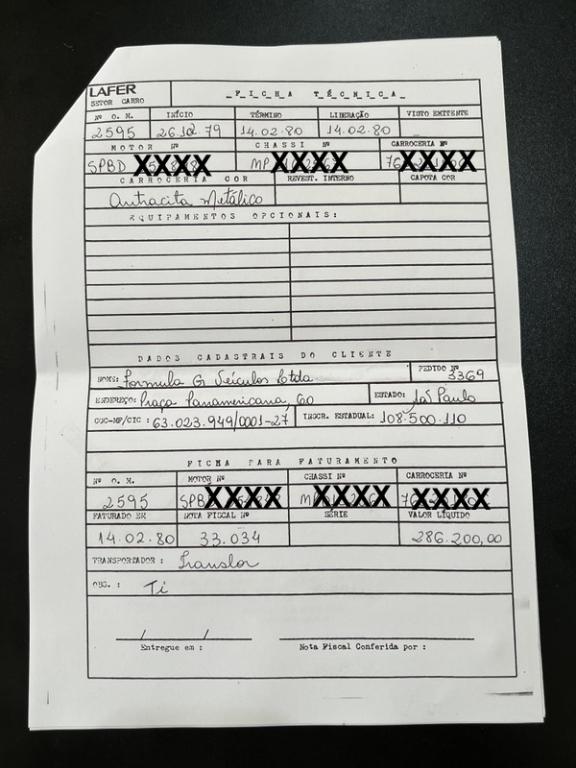 LAFER
SETOR CARRO
FICHA TÉCNICA
Nº O. M. INÍCIO TÉRMINO LIBERAÇÃO VISTO EMITENTE
2595 26.10.79 14.02.80 14.02.80
MOTOR Nº CHASSI Nº CARROCERIA Nº
SPBD XXXX MP XXXX 76 XXXX
CARROCERIA COR REVEST. INTERNO CAPOTA COR
Antracita Metálico
EQUIPAMENTOS OPCIONAIS:
DADOS CADASTRAIS DO CLIENTE
NOME: Formula G Veículos Ltda PEDIDO Nº 3369
ENDEREÇO: Praça Panamericana, 60 ESTADO: São Paulo
CGC-MF/CIC : 63.023.949/0001-27 INSCR. ESTADUAL: 108.500.110
FICHA PARA FATURAMENTO
Nº O. M. MOTOR Nº CHASSI Nº CARROCERIA Nº
2595 SPB XXXX M XXXX 76 XXXX
FATURADO EM NOTA FISCAL Nº SÉRIE VALOR LÍQUIDO
14.02.80 33.034 286.200,00
TRANSPORTADOR : Translor
OBS. : Ti
Entregue em : Nota Fiscal Conferida por :